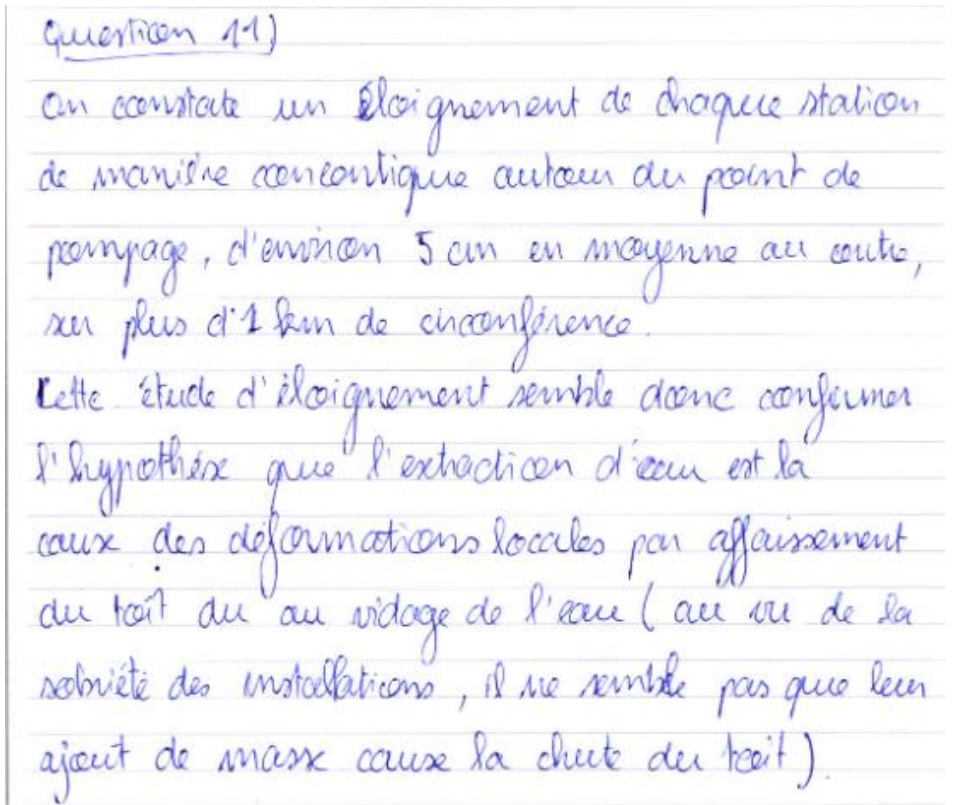 Question 11)
On constate un éloignement de chaque station
de manière concentrique autour du point de
pompage, d'environ 5 cm en moyenne au centre,
sur plus d'1 km de circonférence.
Cette étude d'éloignement semble donc confirmer
l'hypothèse que l'extraction d'eau est la
cause des déformations locales par affaissement
du toit du au vidage de l'eau (au vu de la
sobriété des installations, il ne semble pas que leur
ajout de masse cause la chute du toit).